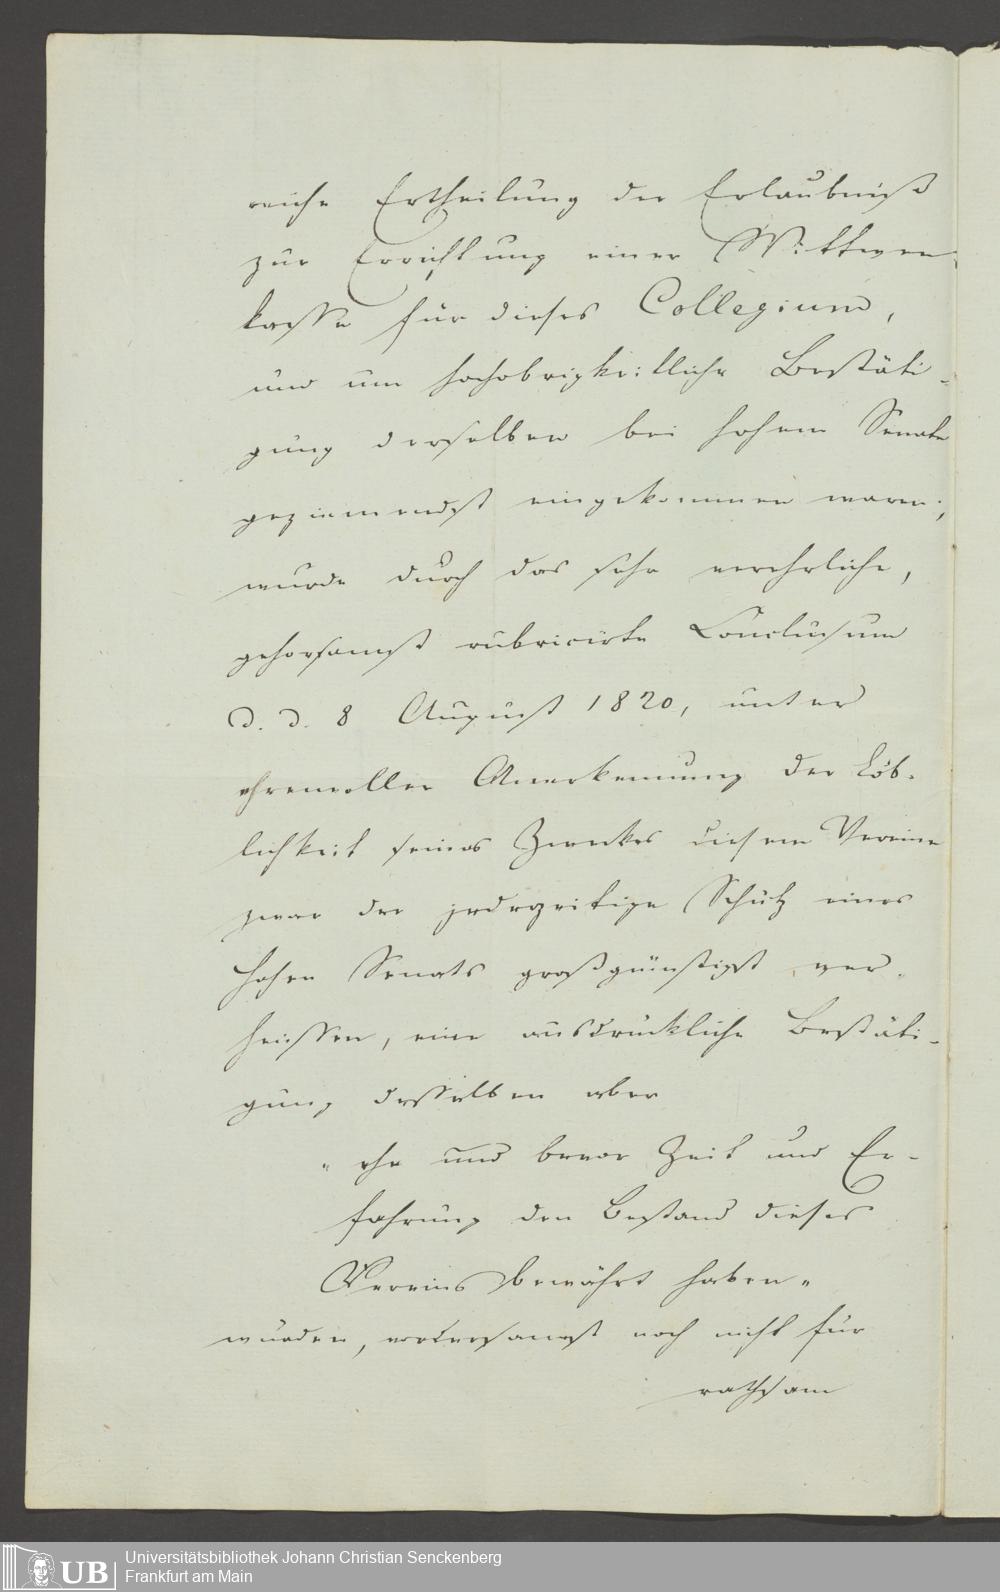 reiche Ertheilung der Erlaubniß
zur Errichtung einer Wittwen-
kasse für dieses Collegium,
und um hochobrigkeitliche Bestäti-
gung derselben bei hohem Senate
geziemendst eingekommen waren;
wurde durch das sehr verehrliche,
gehorsamst rubricirte Conclusum
d. d. 8 August 1820, unter
ehrenvoller Anerkennung der Löb-
lichkeit seines Zweckes diesem Vereine
zwar der jederzeitige Schutz eines
hohen Senats großgünstigst ver-
heissen, eine ausdrückliche Bestäti-
gung desselben aber
"ehe und bevor Zeit und Er-
fahrung den Bestand dieses
Vereins bewährt haben"
wurden, vordersamst noch nicht für
rathsam
UB
Universitätsbibliothek Johann Christian Senckenberg
Frankfurt am Main